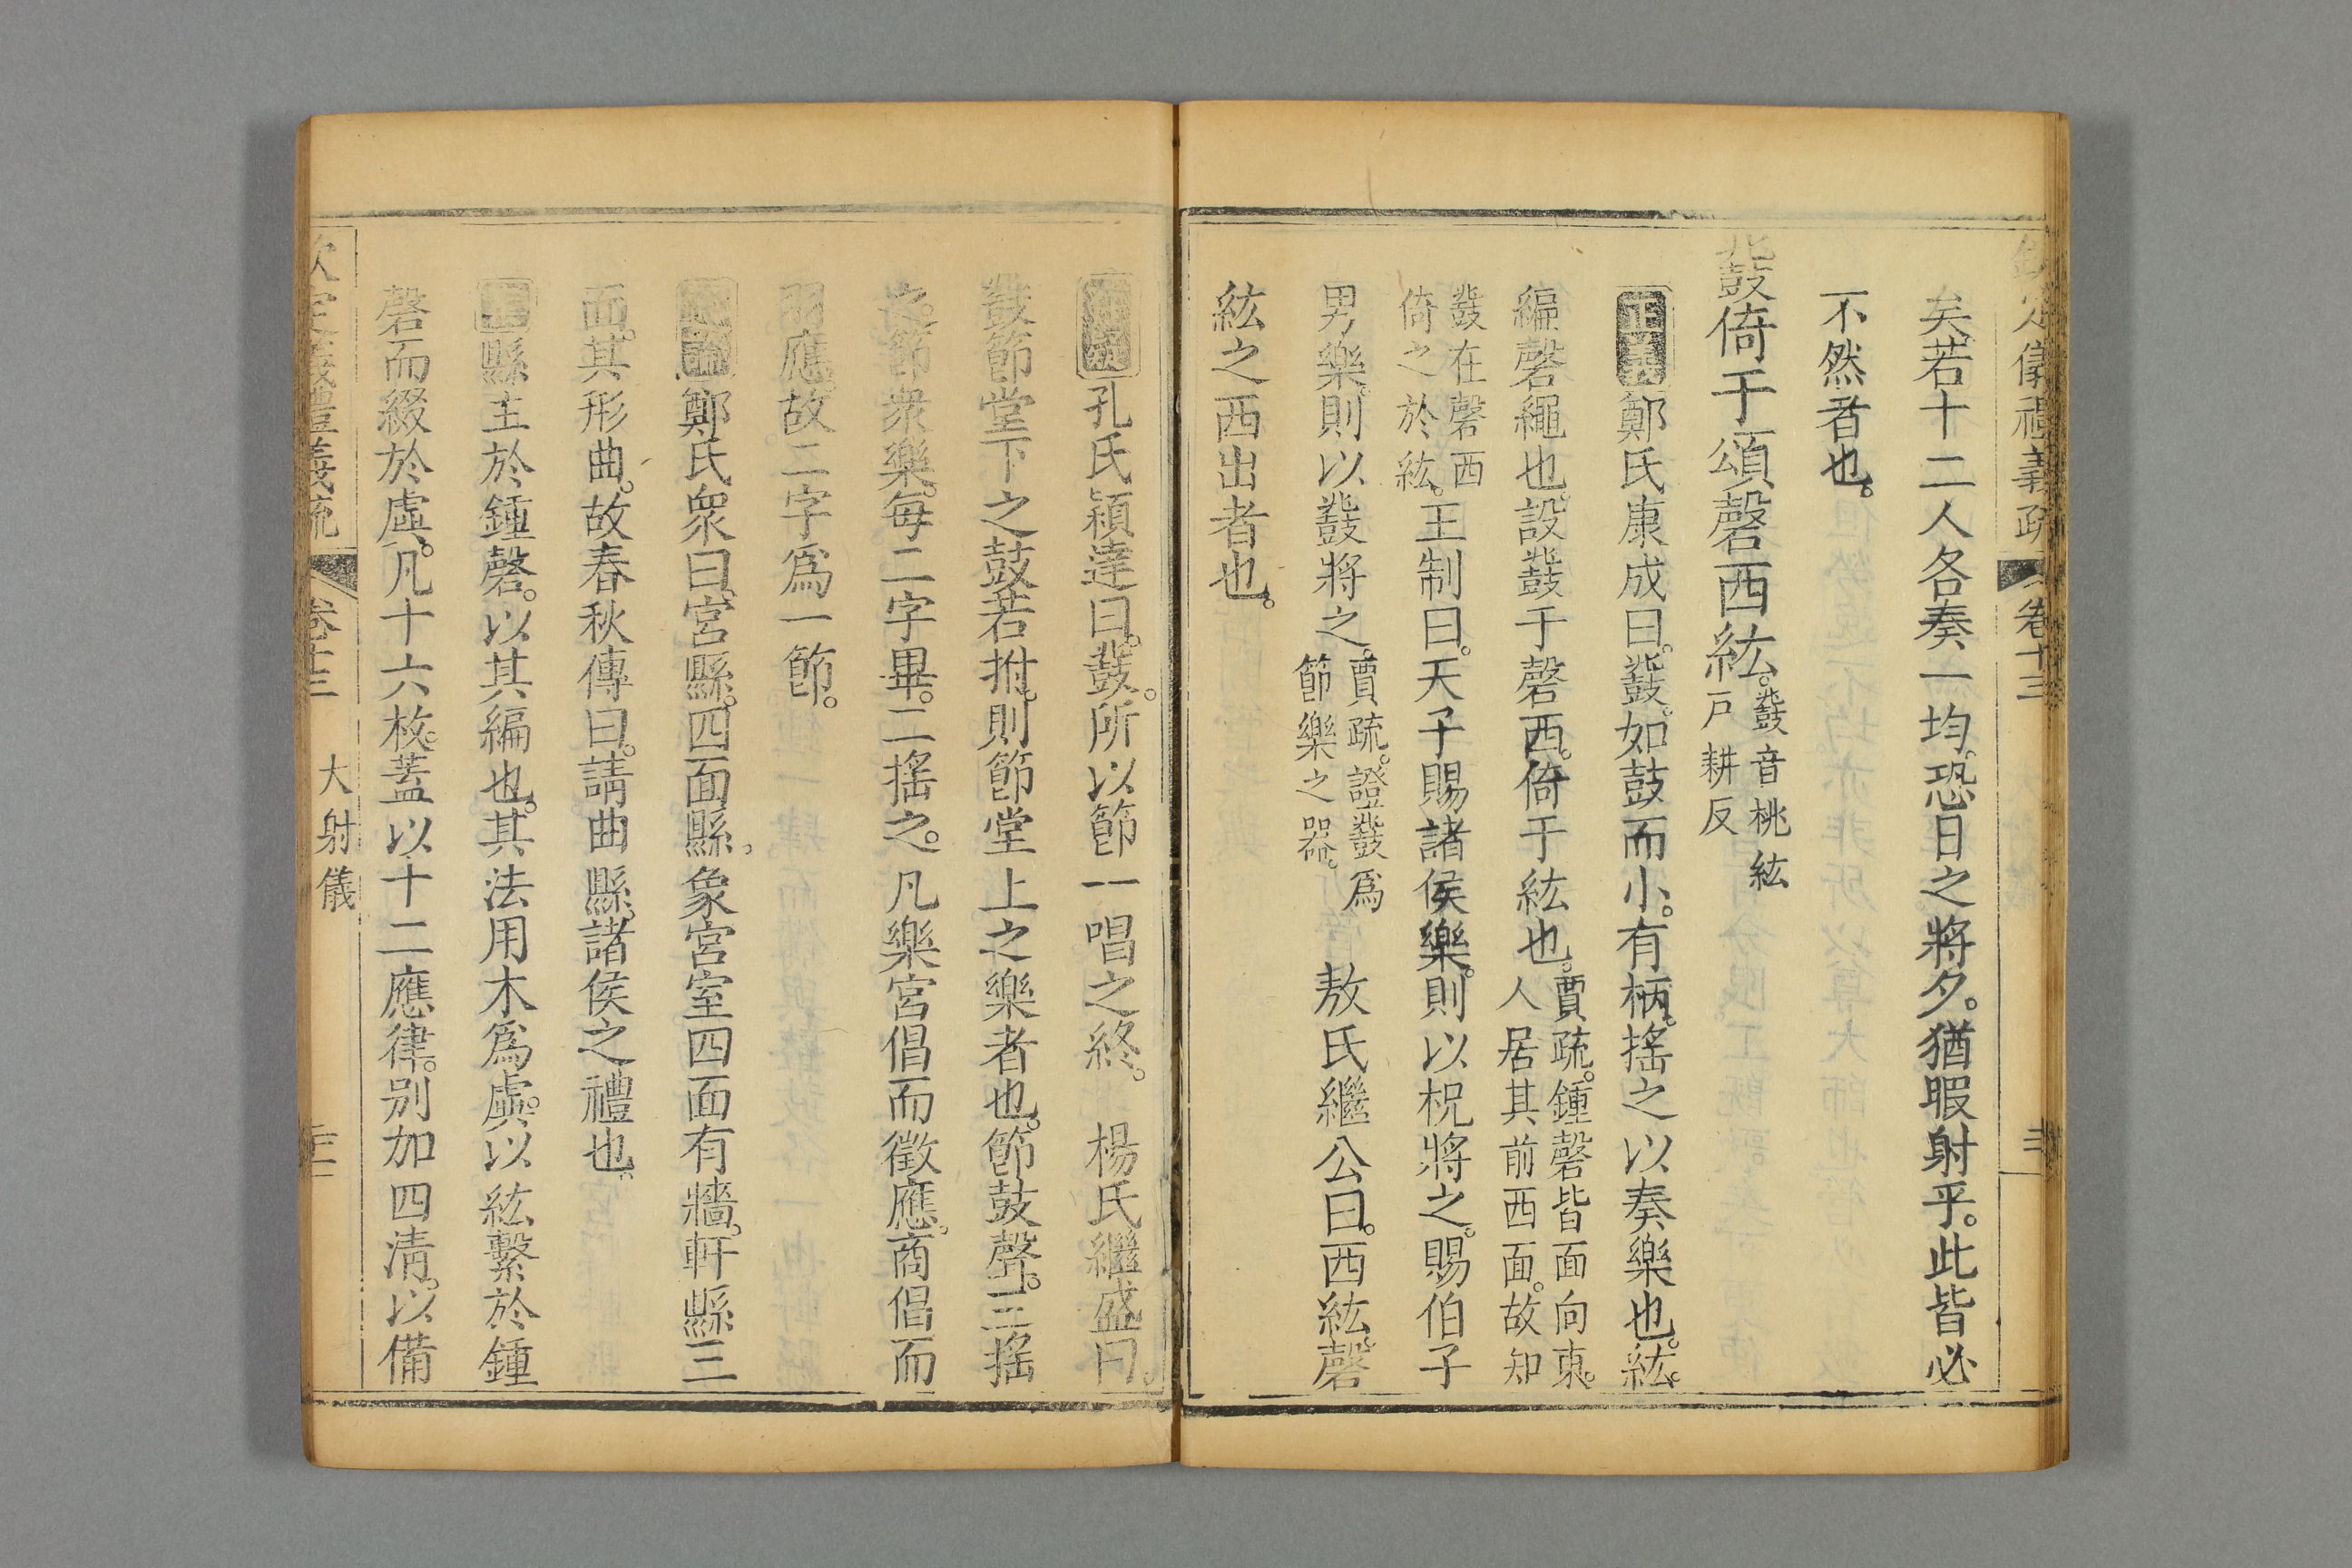 定儀禮義疏 卷十三
矣。若十二人各奏一均。恐日之將夕。猶暇射乎。此皆必
不然者也。
鼗倚于頌磬西紘。鼗音桃紘
戶耕反
正義鄭氏康成曰。鼗。如鼓而小。有柄。搖之以奏樂也。紘。
編磬繩也。設鼗于磬西。倚于紘也。賈疏。鍾磬皆面向東。
人居其前西面。故知
鼗在磬西
倚之於紘。王制曰。天子賜諸侯樂。則以柷將之。賜伯子
男樂。則以鼗將之。賈疏。證鼗爲
節樂之器。 敖氏繼公曰。西紘。磬
紘之西出者也。
孔氏穎達曰。鼗。所以節一唱之終。 楊氏繼盛曰。
鼗節堂下之鼓。若拊。則節堂上之樂者也。節鼓聲。三搖
之。節衆樂。每二字畢。二搖之。凡樂宮倡而徵應。商倡而
羽應。故二字爲一節。
論鄭氏衆曰。宮縣。四面縣。象宮室四面有牆。軒縣三
面。其形曲。故春秋傳曰。請曲縣。諸侯之禮也。
縣主於鍾磬。以其編也。其法用木爲虡。以紘繫於鍾
磬而綴於虡。凡十六枚。蓋以十二應律。別加四清。以備
欽定儀禮義疏 卷十三 大射儀